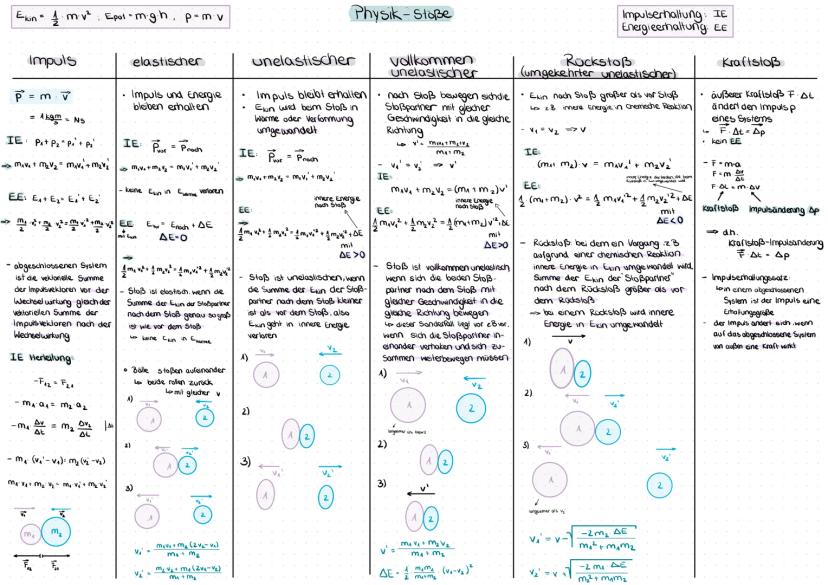 E_kin = 1/2 m·v², E_pot = m·g·h, p = m·v
Physik-Stöße
Impulserhaltung: IE
Energieerhaltung: EE
Impuls
p⃗ = m · v⃗
= 1 kgm/s = Ns
IE: p₁ + p₂ = p₁' + p₂'
⇒ m₁v₁ + m₂v₂ = m₁v₁' + m₂v₂'
EE: E₁ + E₂ = E₁' + E₂'
- abgeschlossenen System
ist die vektorielle Summe
der Impulsvektoren vor der
Wechselwirkung gleich der
vektoriellen Summe der
Impulsvektoren nach der
Wechselwirkung
IE Herleitung
-F₁₂ = F₂₁
-m₁·a₁ = m₂·a₂
-m₁ Δv/Δt = m₂ Δv₂/Δt |Δt
-m₁·(v₁'-v₁) = m₂(v₂'-v₂)
m₁v₁ + m₂v₂ = m₁v₁' + m₂v₂'
m₁ m₂
elastischer
• Impuls und Energie
bleiben erhalten
IE: p⃗vor = p⃗nach
⇒ m₁v₁ + m₂v₂ = m₁v₁' + m₂v₂'
EE
ΔE=0
- Stoß ist elastisch, wenn die
Summe der E_kin der Stoßpartner
nach dem Stoß genau so groß
ist wie vor dem Stoß
• Bälle stoßen aufeinander
↳ beide rollen zurück
↳ mit gleicher v
1)
1 2
2)
1 2
3)
1 2
v₁' = m₁v₁ + m₂(2v₂-v₁) / m₁+m₂
v₂' = m₂v₂ + m₁(2v₁-v₂) / m₁+m₂
unelastischer
• Impuls bleibt erhalten
• E_kin wird beim Stoß in
Wärme oder Verformung
umgewandelt
IE: p⃗vor = p⃗nach
⇒ m₁v₁ + m₂v₂ = m₁v₁' + m₂v₂'
innere Energie
nach Stoß
EE:
1/2 m₁v₁² + 1/2 m₂v₂² = 1/2 m₁v₁'² + 1/2 m₂v₂'² + ΔE
mit
ΔE>0
- Stoß ist unelastisch, wenn
die Summe der E_kin der Stoß-
partner nach dem Stoß kleiner
ist als vor dem Stoß, also
E_kin geht in innere Energie
verloren
1)
1 2
2)
1 2
3)
1 2
vollkommen
unelastischer
• nach Stoß bewegen sich die
Stoßpartner mit gleicher
Geschwindigkeit in die gleiche
Richtung
↳ v' = m₁v₁+m₂v₂ / m₁+m₂
- v₁' = v₂' ⇒ v'
IE:
m₁v₁ + m₂v₂ = (m₁+m₂)v'
innere Energie
nach Stoß
EE:
1/2 m₁v₁² + 1/2 m₂v₂² = 1/2 (m₁+m₂)v'² + ΔE
mit
ΔE>0
- Stoß ist vollkommen unelastisch
wenn sich die beiden Stoß-
partner nach dem Stoß mit
gleicher Geschwindigkeit in die
gleiche Richtung bewegen
↳ dieser Sonderfall liegt vor z.B. vor,
wenn sich die Stoßpartner in-
einander verhaken und sich zu-
sammen weiterbewegen müssen
1)
1 2
2)
1 2
3) v'
1 2
v' = m₁v₁+m₂v₂ / m₁+m₂
ΔE = 1/2 m₁m₂/m₁+m₂ · (v₁-v₂)²
Rückstoß
(umgekehrter unelastischer)
• E_kin nach Stoß größer als vor Stoß
↳ z.B. innere Energie in chemische Reaktion
- v₁ = v₂ ⇒ v
IE:
(m₁+m₂)·v = m₁v₁' + m₂v₂'
EE:
1/2 (m₁+m₂)·v² = 1/2 m₁v₁'² + 1/2 m₂v₂'² + ΔE
mit
ΔE<0
- Rückstoß: bei dem ein Vorgang z.B.
aufgrund einer chemischen Reaktion
innere Energie in E_kin umgewandelt wird
Summe der E_kin der "Stoßpartner"
nach dem Rückstoß größer als vor
dem Rückstoß
⇒ bei einem Rückstoß wird innere
Energie in E_kin umgewandelt
1) v
1 2
2)
1 2
3)
1 2
v₁' = v - √(-2m₂ΔE / m₁²+m₁m₂)
v₂' = v + √(-2m₁ΔE / m₂²+m₁m₂)
Kraftstoß
• äußerer Kraftstoß F·Δt
ändert den Impuls p
eines Systems
↳ F⃗·Δt = Δp⃗
- kein EE
- F = m·a
F = m Δv/Δt
F·Δt = m·Δv
Kraftstoß Impulsänderung Δp
⇒ d.h.
Kraftstoß=Impulsänderung
F⃗·Δt = Δp
- Impulserhaltungssatz:
↳ in einem abgeschlossenen
System ist der Impuls eine
Erhaltungsgröße
- der Impuls ändert sich, wenn
auf das abgeschlossene System
von außen eine Kraft wirkt